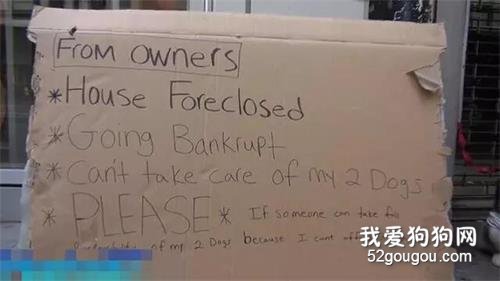 From owners
*House Foreclosed
*Going Bankrupt
*Can't take care of my 2 Dogs
*PLEASE* If someone can take full
of my 2 Dogs because I cant
我爱狗狗网
52gougou.com